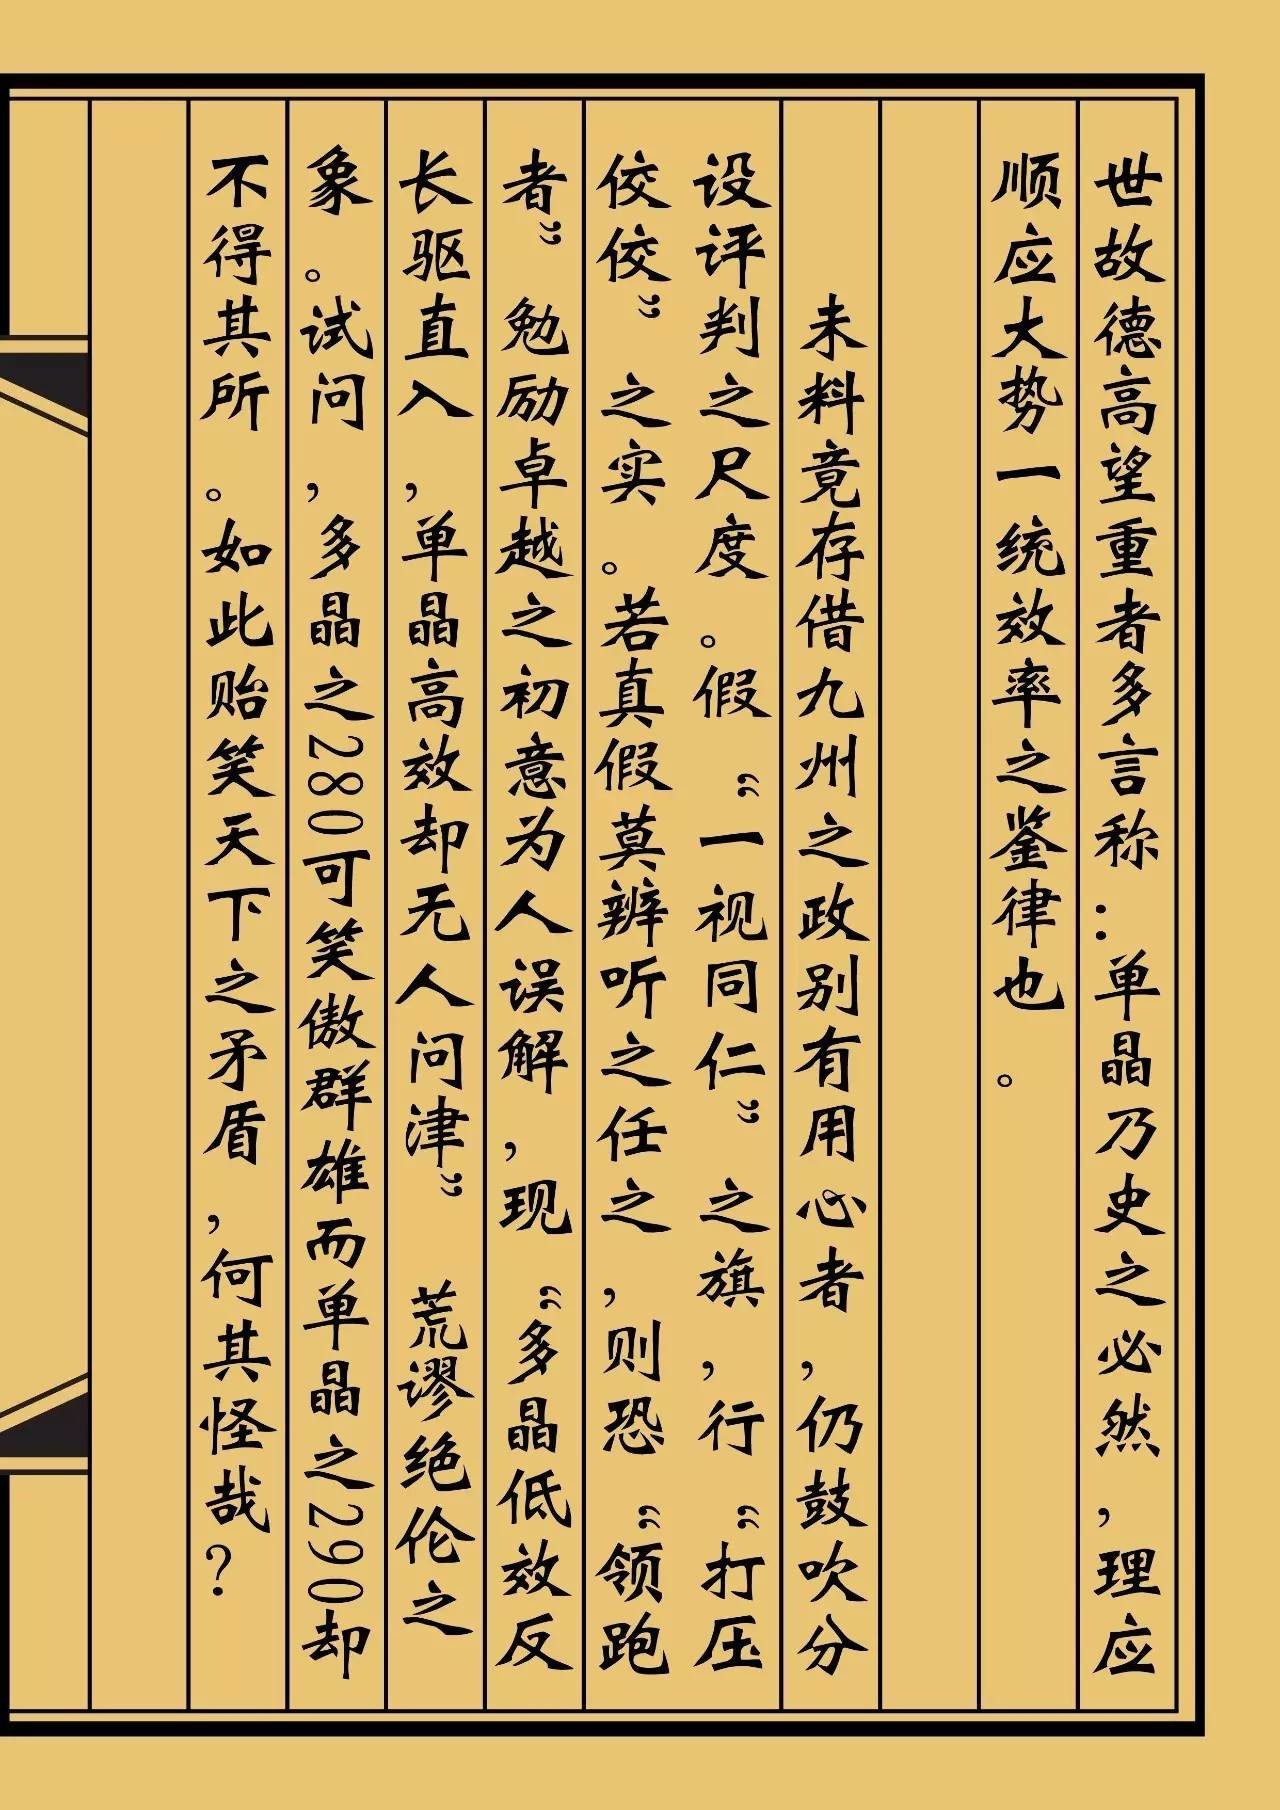 世故德高望重者多言称：单晶乃史之必然，理应
顺应大势一统效率之鉴律也。
未料竟存借九州之政别有用心者，仍鼓吹分
设评判之尺度。假“一视同仁”之旗，行“打压
佼佼”之实。若真假莫辨听之任之，则恐“领跑
者”勉励卓越之初意为人误解，现“多晶低效反
长驱直入，单晶高效却无人问津”荒谬绝伦之
象。试问，多晶之280可笑傲群雄而单晶之290却
不得其所。如此贻笑天下之矛盾，何其怪哉？